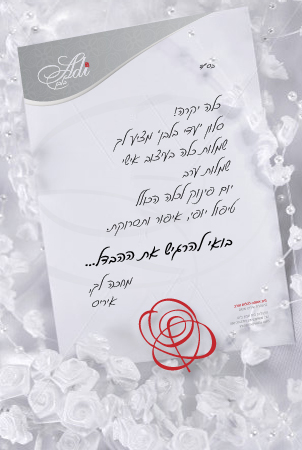 Adi
בלבן
בס״ד
כלה יקרה!
סלון 'עדי בלבן' מציע לך
שמלות כלה בעיצוב אישי
שמלות ערב
יום פינוק לכלה הכולל
טיפול יופי, איפור ותסרוקת
בואי להרגיש את ההבדל...
מחכה לך
איריס